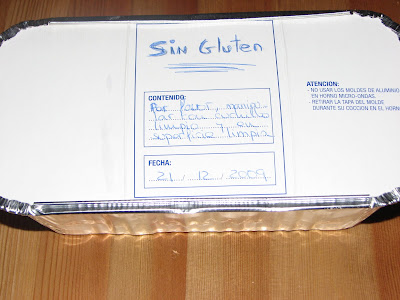 Sin Gluten
CONTENIDO:
Por favor, manipu
lar con cuchillo
limpio y en
superficie limpia
FECHA:
21 / 12 / 2009
ATENCION:
- NO USAR LOS MOLDES DE ALUMINIO
EN HORNO MICRO-ONDAS.
- RETIRAR LA TAPA DEL MOLDE
DURANTE SU COCCION EN EL HORNO